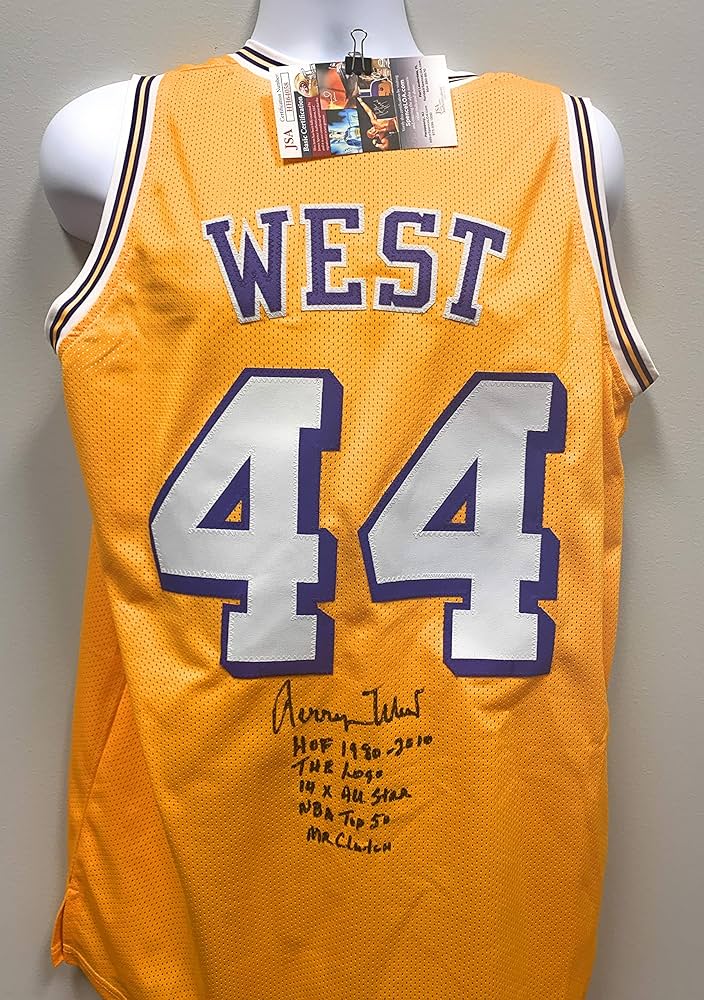 JSA
Basic Certification
WEST
44
Jerry West
HOF 1980-2010
THE LOGO
14 x ALL STAR
NBA Top 50
MR Clutch